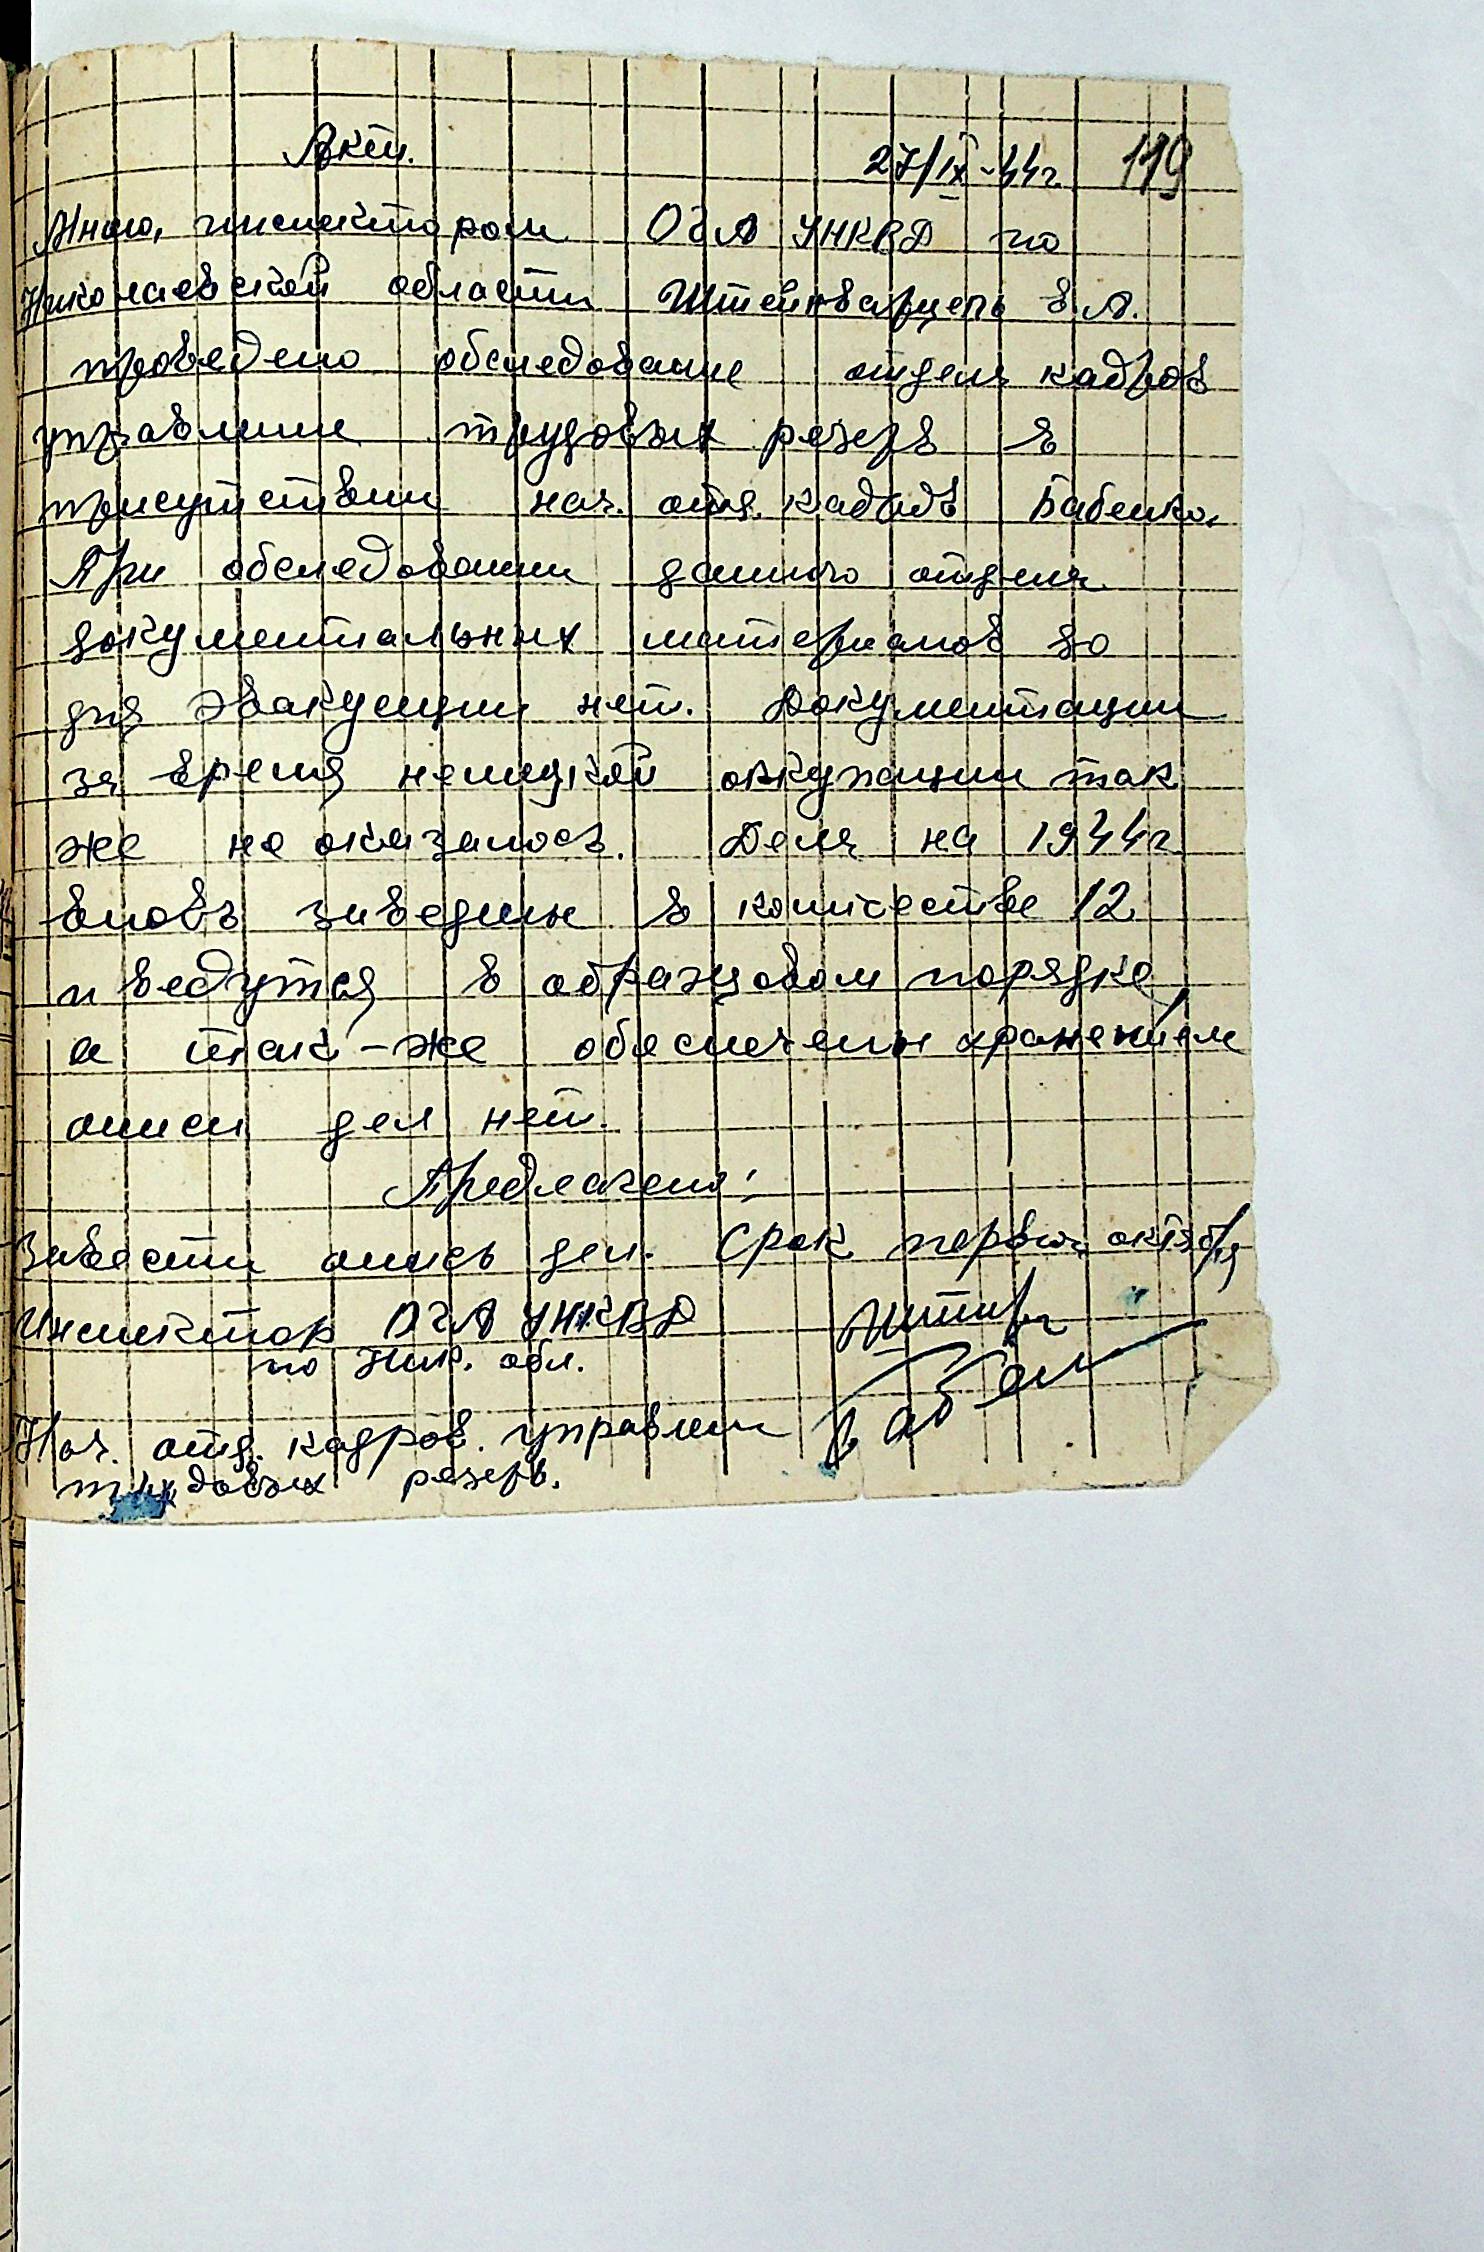 Акт. 27/IX-44г. 119
Мною, инспектором ОГА УНКВД по
Николаевской области Штейнварцель В.А.
проведено обследование отдела кадров
управлении трудовых резерв в
присутствии нач. отд. кадров Бабенко.
При обследовании данного отдела
документальных материалов до
дня эвакуации нет. Документации
за время немецкой оккупации так
же не оказалось. Дела на 1944г
вновь заведены в количестве 12
и ведутся в образцовом порядке,
а так-же обеспечены хранением
описи дел нет.
Предложено:
Завести опись дел. Срок первого октября
Инспектор ОГА УНКВД
по Ник. обл.
Нач. отд. кадров. управлении
трудовых резерв.